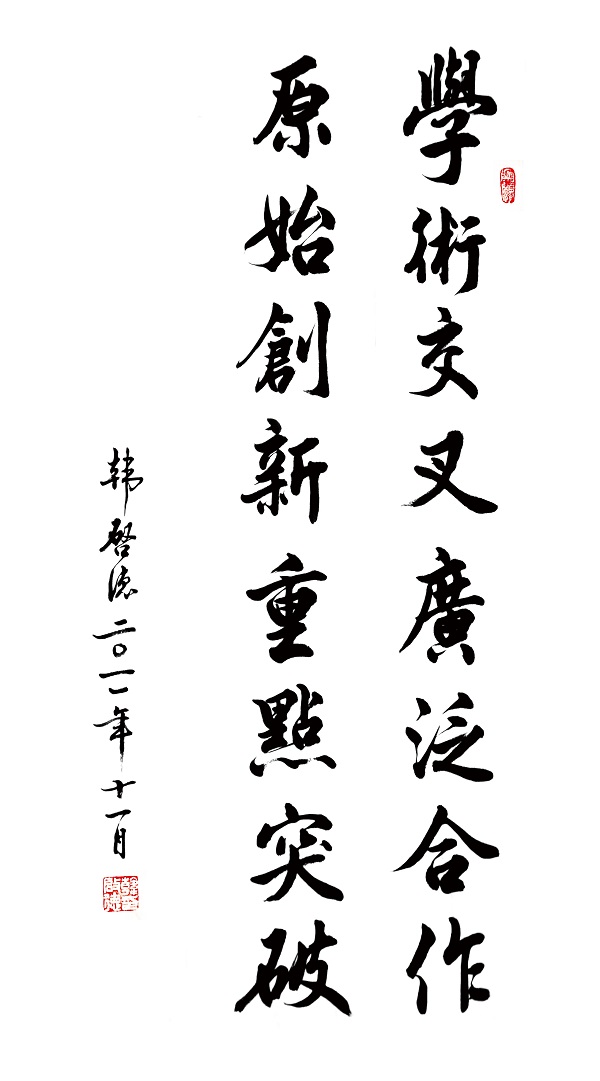 學術交叉廣泛合作
原始創新重點突破
韩启德二〇一一年十一月